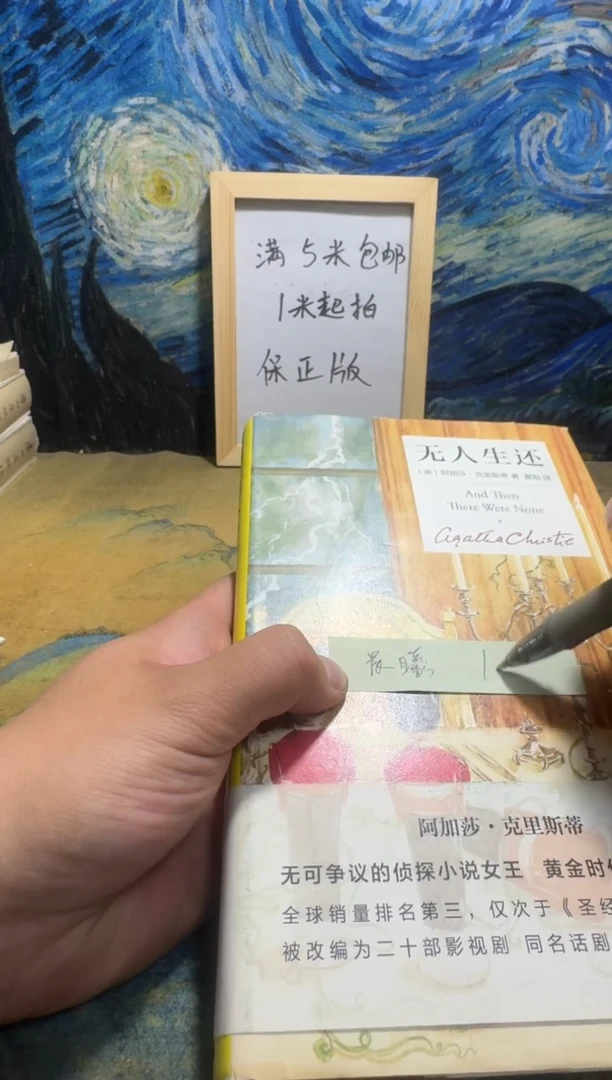 满5米包邮
1米起拍
保正版
无人生还
（英）阿加莎·克里斯蒂 著
And Then
There Were None
Agatha Christie
阿加莎·克里斯蒂
无可争议的侦探小说女王 黄金时
全球销量排名第三，仅次于《圣经
被改编为二十部影视剧 同名话剧